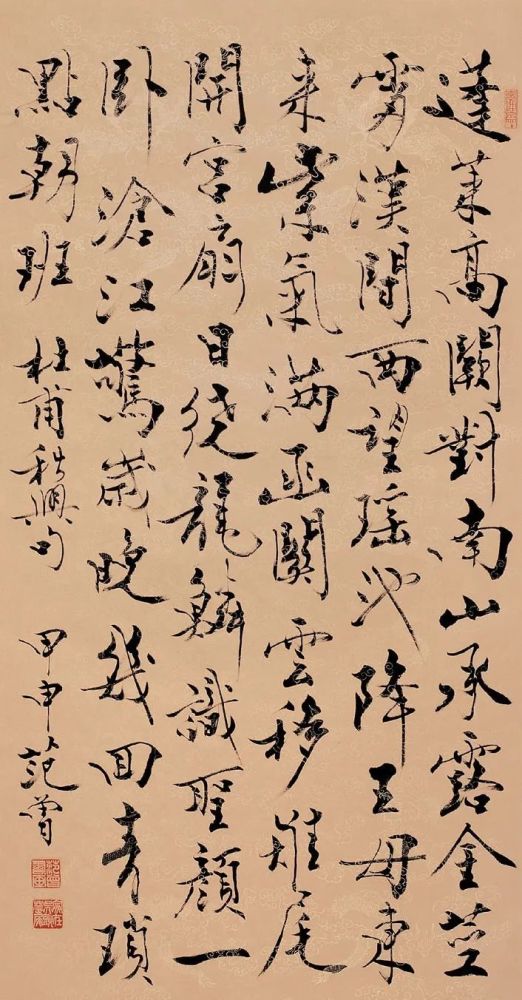 蓬莱高闕對南山承露金莖
霄漢間西望瑶池降王母東
来紫氣满函關雲移雉尾
開宫扇日绕龍鳞識聖顔一
卧滄江驚歲晚幾回青瑣
點朝班 杜甫秋興句 甲申范曾